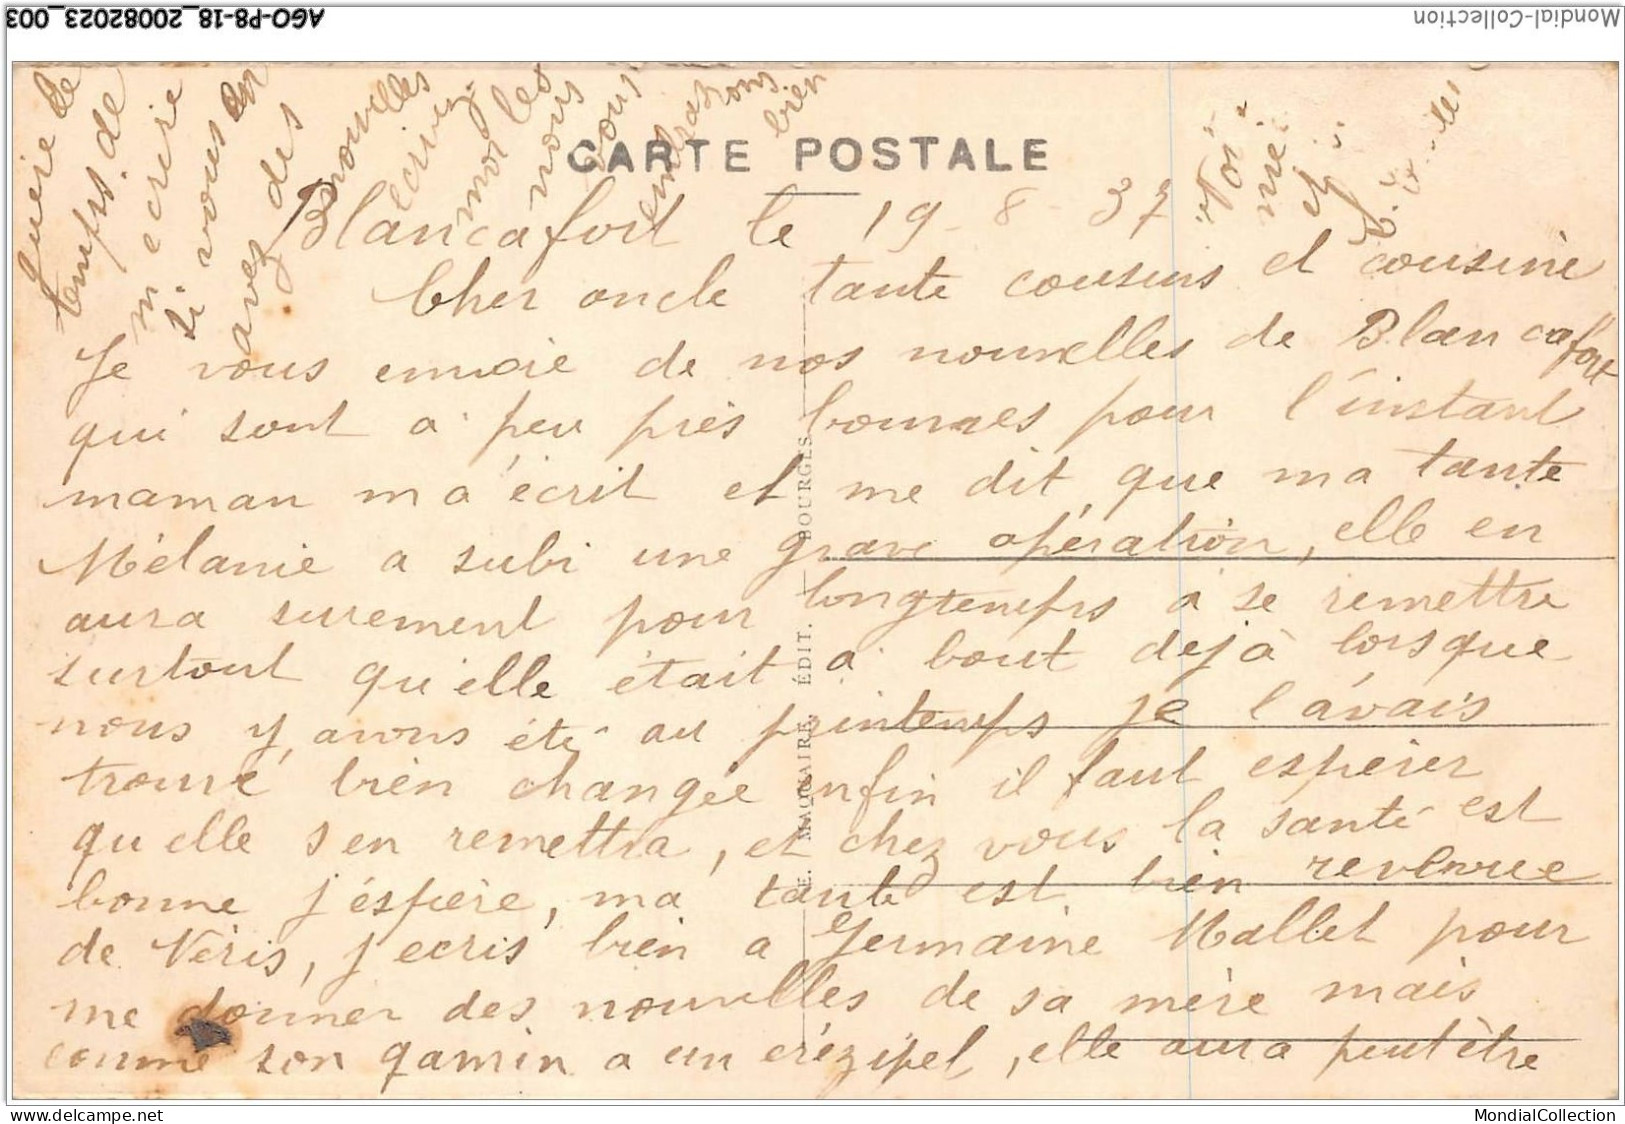 AGO-P8-18_20082023_003
Mondial-Collection
CARTE POSTALE
Blancafort le 19-8-37
Cher oncle tante cousins et cousine
Je vous envoie de nos nouvelles de Blancafort
qui sont a peu près bonnes pour l'instant
maman m'a écrit et me dit que ma tante
Mélanie a subi une grave opération, elle en
aura surement pour longtemps a se remettre
surtout qu'elle était a bout dejà lorsque
nous y avons été au printemps je l'avais
trouvé bien changée enfin il faut espérer
qu'elle s'en remettra, et chez vous la santé est
bonne j'éspère, ma tante est bien revenue
de Néris, j'ecris bien a Germaine Mallet pour
me donner des nouvelles de sa mère mais
comme son gamin a un érézipel, elle aura peut être
guère le
temps de
m'ecrire
si vous en
avez des
nouvelles
ecrivez
moi les
nous
nous
bien
E. MAQUAIRE, ÉDIT. BOURGES
MondialCollection